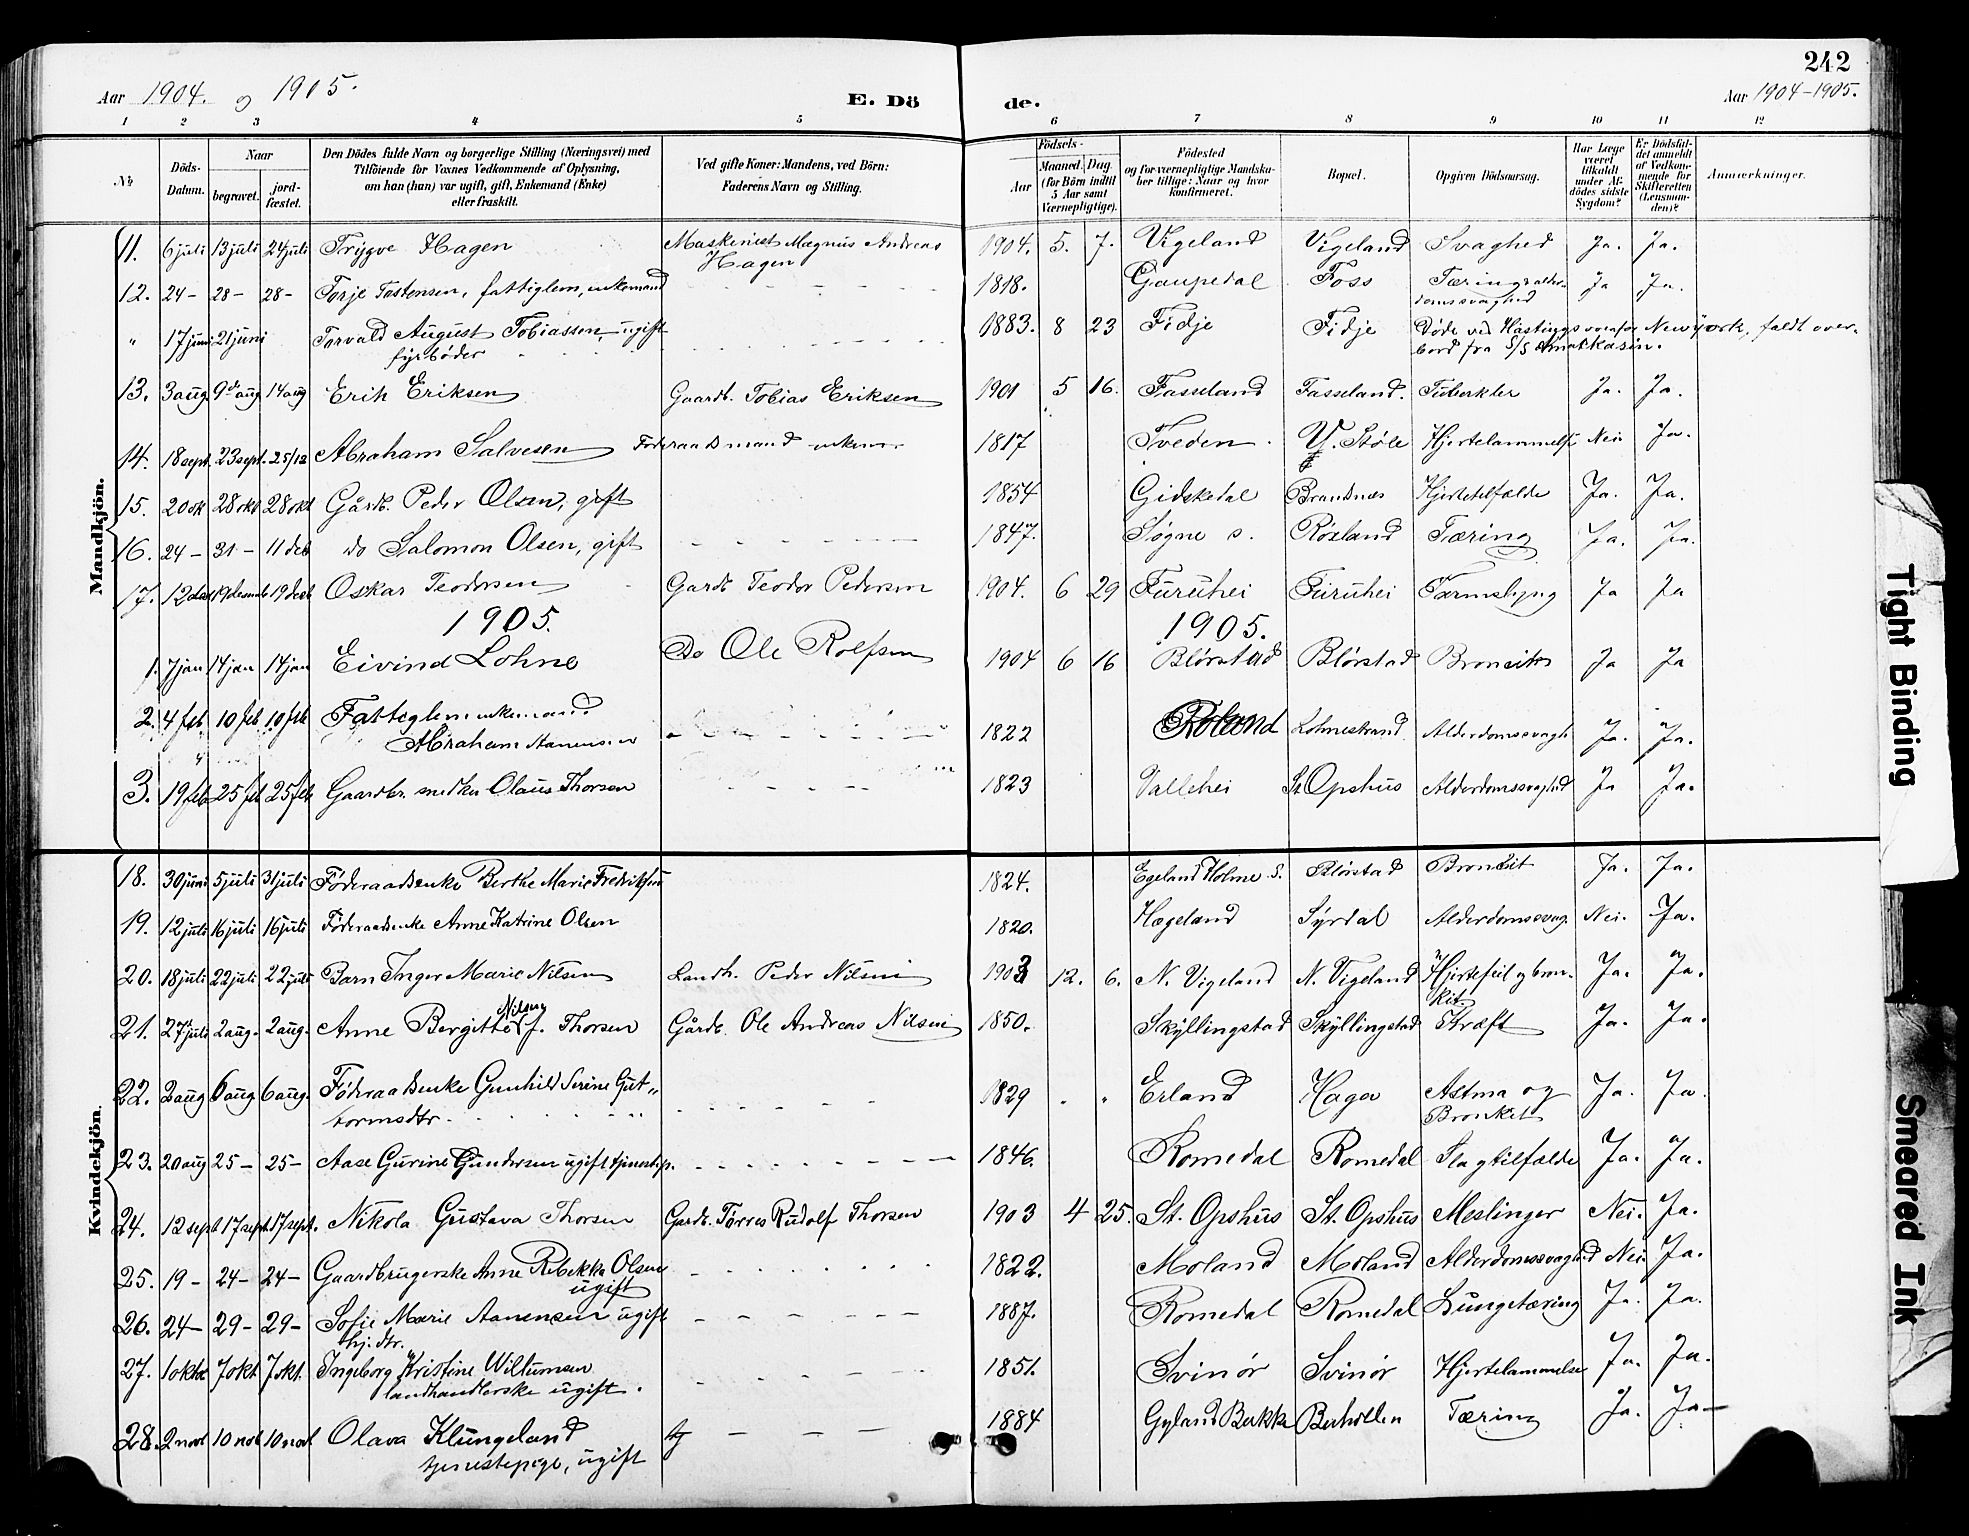 242
Aar 1904. og 1905. E. Dö de. Aar 1904-1905.
1 2 3 4 5 6 7 8 9 10 11 12
No Döds-Datum. Naar begravet. jord-fæstet. Den Dödes fulde Navn og borgerlige Stilling (Næringsvei) med Tilföiende for Voxnes Vedkommende af Oplysning, om han (hun) var ugift, gift, Enkemand (Enke) eller fraskilt. Ved gifte Koner: Mandens, ved Börn: Faderens Navn og Stilling. Födsels- Aar Maaned. Dag. (for Börn indtil 5 Aar samt Værnepligtige). Födested og for værnepligtige Mandskaber tillige: Naar og hvor konfirmeret. Bopæl. Opgiven Dödsaarsag. Har Læge været tilkaldt under Afdödes sidste Sygdom? Er Dödsfaldet anmeldt af Vedkommende for Skifteretten (Lensmanden)? Anmærkninger.
Mandkjön.
11. 6 juli 13 juli 24 juli Trygve Hagen Maskenist Magnus Andreas Hagen 1904. 5. 7. Vigeland Vigeland Svaghed Ja. Ja.
12. 24- 28- 28- Torje Tostensen, fattiglem, enkemand 1818. Gaupedal Foss Ja Ja.
" 17 juni 21 juni Torvald August Tobiassen, ugift fyrböder 1883. 8 23 Fidje Fidje Döde ved Hastings ovenfor Newyork, faldt over-
bord fra S/S
13. 3 aug 9de aug 14 aug Erik Eriksen Gaardb. Tobias Eriksen 1901 5 16. Fasseland Fasseland. Tuberkler Ja. Ja.
14. 18 sept. 23 sept. 25/12 Abraham Salvesen Föderaadsmand enkem. 1817 Tveden. Y. Støle Hjertelammelse Nei Ja.
15. 20 ok 28 okt 28 okt Gårdb. Peder Olsen, gift 1854 Gidskedal Brandnæs Hjertetilfælde Ja. Ja.
16. 24- 31- 11 deb do Salomon Olsen, gift 1847. Søgne s. Røsland Tæring Ja. Ja.
17. 12 19 19 Oskar Teodorsen Gardb Teodor Pedersen 1904. 6 29 Furuhei Furuhei Ja Ja
1905. 1905.
1. 7 jan 14 jan 14 jan Eivind Lohne Do Ole Rolfsen 1904 6 16 Blørstad Blørstad Ja Ja
2. 4 feb 10 feb 10 feb Fattiglem enkemand
Abraham Aanensen 1822 Lohnestrand Alderdomssvagh Ja. Ja.
3. 19 feb 25 feb 25 feb Gaardbr. snedker Olaus Thorsen 1823 Vallehei St Opshus Alderdomssvaghed Ja Ja.
Kvindekjön.
18. 30 juni 5 juli 31 juli Föderaadsenke Berthe Marie Fredriksen 1824. Egeland Holme S. Blørstad Bronkit Ja. Ja.
19. 12 juli 16 juli 16 juli Föderaadsenke Anne Katrine Olsen 1820. Hægeland Syrdal Alderdomssvag. Nei. Ja.
20. 18 juli 22 juli 22 juli Barn Inger Marie Nilsen Landh. Peder Nilsen 1903 12. 6. N. Vigeland N. Vigeland Hjertefeil og bron-
kit Ja. Ja.
21. 27 juli 2 aug. 2 aug. Anne Bergitte Nilsen f. Thorsen Gårdb. Ole Andreas Nilsen 1850. Skyllingstad Skyllingstad Kræft Ja. Ja.
22. 2 aug 6 aug 6 aug. Föderaadsenke Gunhild Serine Gut-
tormsdtr. 1829 " " Erland Haga Astma og
Bronkit Ja. Ja.
23. 20 aug 25- 25- Aase Gurine Gundersen ugift tjenestep. 1846. Romedal Romedal Slagtilfælde Ja. Ja.
24. 12 sept 17 sept. 17 sept. Nikola Gustava Thorsen Gardb. Tørres Rudolf Thorsen 1903 4 25. St. Opshus St. Opshus Meslinger Nei. Ja.
25. 19- 24- 24- Gaardbrugerske Anne Rebekka Olsen
ugift 1822. Moland Moland Alderdomssvaghed Nei Ja.
26. 24- 29- 29- Sofie Marie Aanensen ugift
hj. dtr. 1887. Romedal Romedal Lungetæring Ja. Ja.
27. 1 okt 7 okt 7 okt. Ingeborg Kristine Wiltumsen
landhandlerske ugift. 1851. Svinör Svinör Hjertelammelse Ja. Ja.
28. 2 nov 10 nov 10 nov Olava Klungeland
tjenestepige, ugift 1884 Gyland Bakke Tæring Ja. Ja
Tight Binding
Smeared Ink